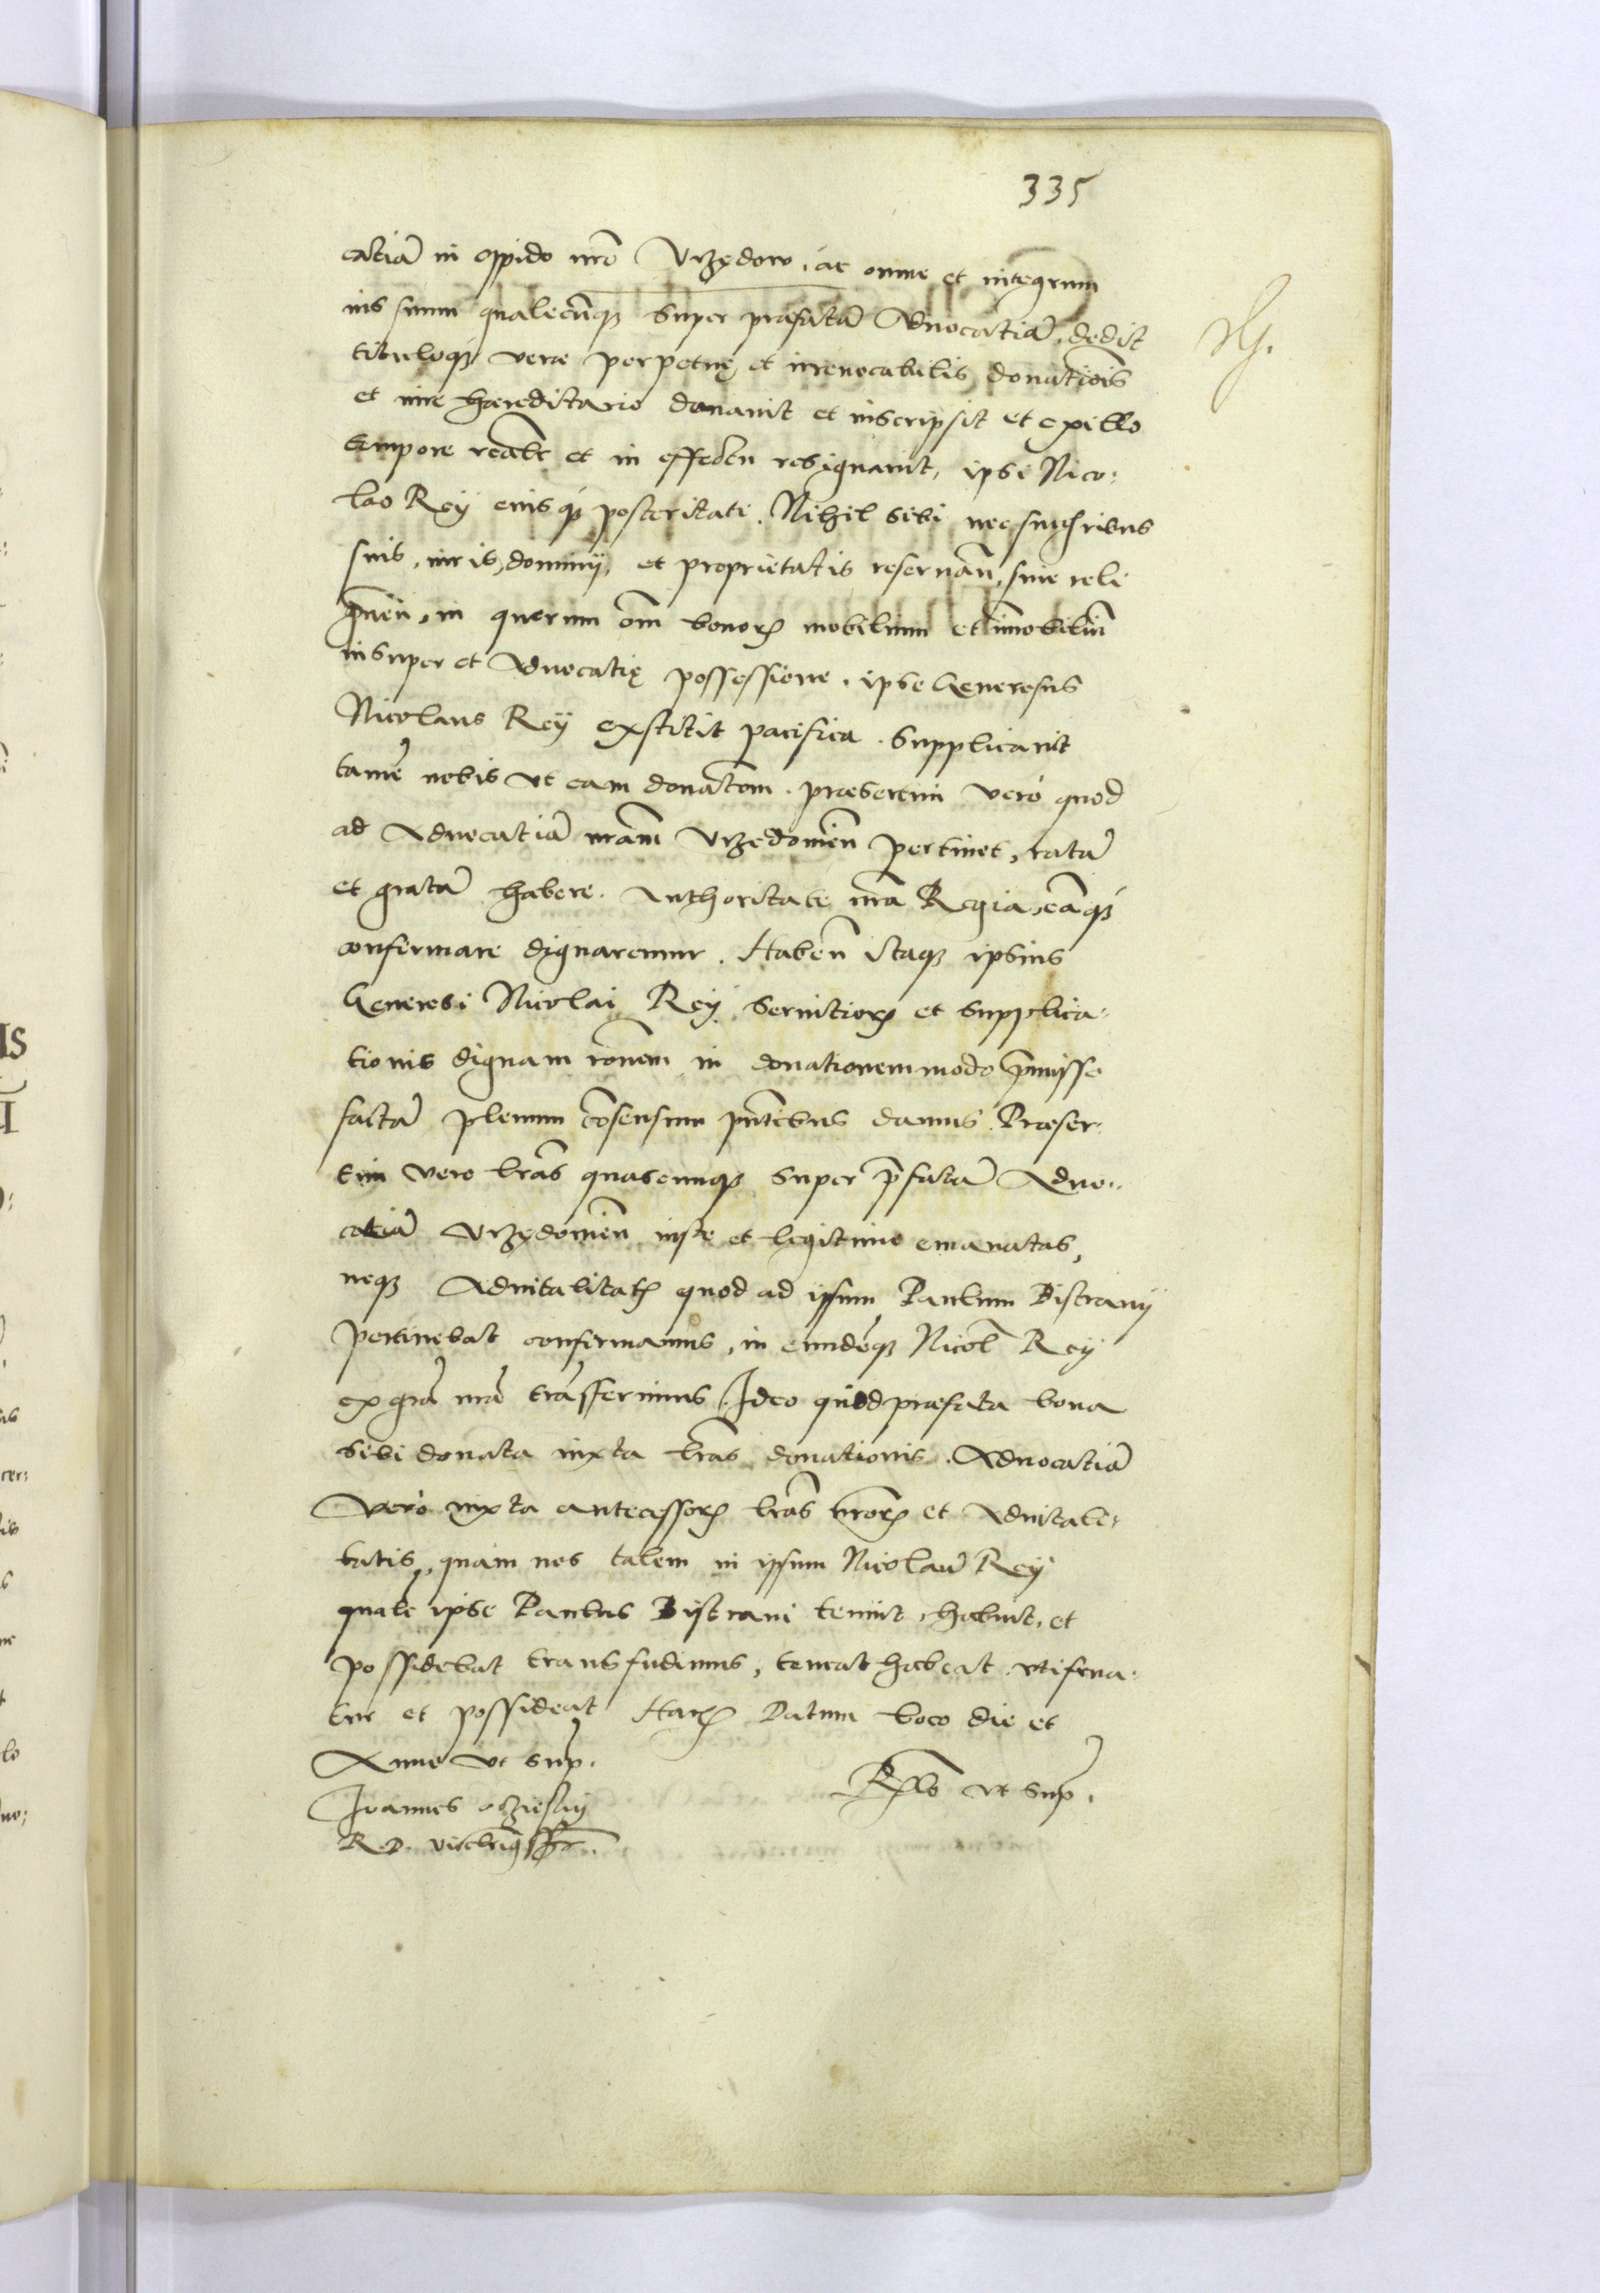 335
catiā in oppido nrō Vrzędow, ac omne et integrum
ius suum qualecūq3 super praefatā Aduocatiā, dedit
tituloq3 verae perpetuę et irreuocabilis donatiōis
et iure haereditario donauit et inscripsit et ex illo
tempore realr̄ et in effectū resignauit, ipsi Nico:
lao Reÿ eiusq3 posteritati. Nihil sibi nec succ̄ribus
suis, iuris, dominÿ, et proprietatis reseruan̄, siue reli
quen̄, in quorum om̄ bonorꝝ mobilium et im̄obiliū
insuper et Aduocatię possessione, ipse Generosus
Nicolaus Reÿ exstitit pacifica. Supplicauit
tamē nobis vt eam donatōm. praesertim verò quod
ad Aduocatiā nrām Vrzędouien̄ pertinet, ratā
et gratā habere. Authoritate nrā Regia, eāq3
confirmare dignaremur. Haben̄ itaq3 ipsius
Generosi Nicolai Reÿ seruitiorꝝ et supplica:
tionis dignam rōnem in donationem modo p̄misso
factā plenum cōsensum pn̄tibus damus. Praeser:
tim vero lrās quascunq3 super p̄fatā Aduo:
catiā Vrzędouien̄ iuste et legitime emanatas,
neq3 Aduitalitatē quod ad ipsum Paulum Bistranÿ
pertinebat confirmamus, in eundēq3 Nicol̄ Reÿ
ex grā nrā trāsferimus. Ideo quod praefata bona
sibi donata iuxta lrās donationis. Aduocatiā
Verò iuxta antecessorꝝ lrās nrōrꝝ et Aduitali:
tatis, quam nos talem in ipsum Nicolaū Reÿ
qualē ipse Paulus Bistrani tenuit, habuit, et
possidebat transfudimus, teneat habeat vtifrua:
tur et possideat Harꝝ Datum loco die et
Anno vt sup̄.
Rlō vt sup̄.
Joannes oczieskÿ
R. P. vicecan̄ sst.